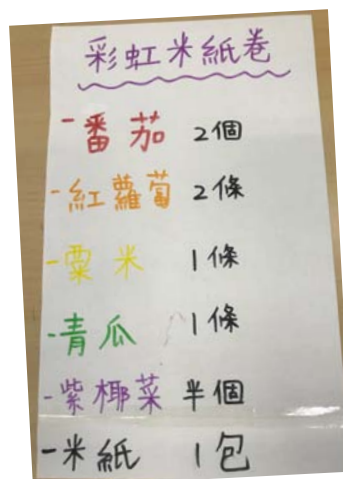 彩虹米紙卷
-番茄 2個
-紅蘿蔔 2條
-粟米 1條
-青瓜 1條
-紫椰菜 半個
-米紙 1包